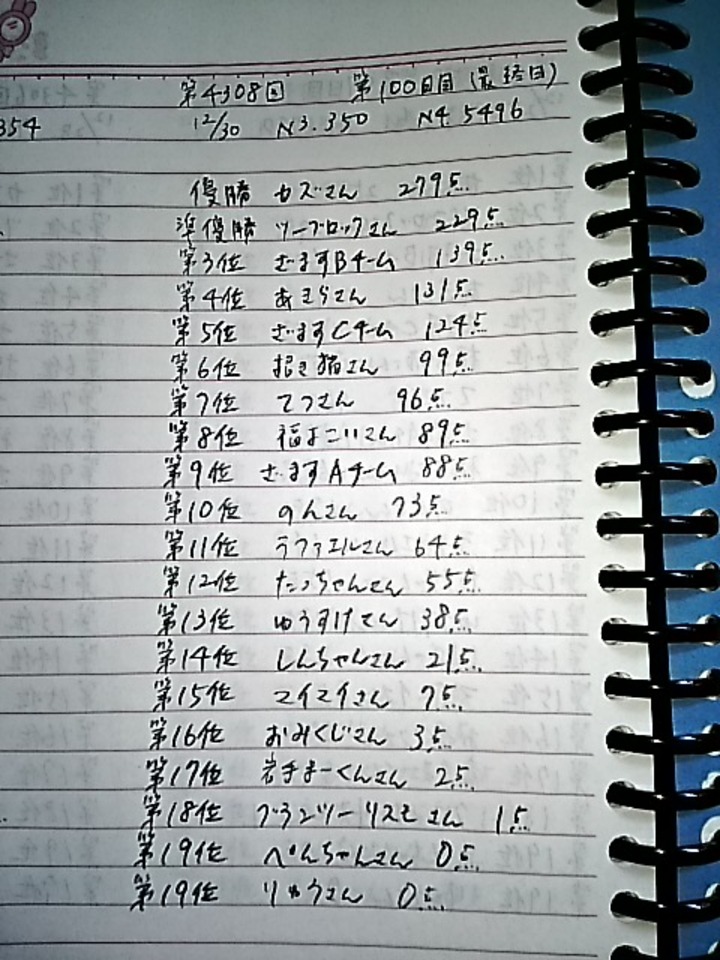 第4308回 第100回目(最終日)
354 12/30 N3.350 N4.5496
優勝 カズさん 279点
準優勝 ツーブロックさん 229点
第3位 ざますBチーム 139点
第4位 あきらさん 131点
第5位 ざますCチーム 124点
第6位 招き猫さん 99点
第7位 てつさん 96点
第8位 福よこいさん 89点
第9位 ざますAチーム 88点
第10位 のんさん 73点
第11位 ラファエルさん 64点
第12位 たっちゃんさん 55点
第13位 ゆうすけさん 38点
第14位 しんちゃんさん 21点
第15位 マイマイさん 7点
第16位 おみくじさん 3点
第17位 岩手まーくんさん 2点
第18位 さん 1点
第19位 ぺんちゃんさん 0点
第19位 りゅうさん 0点